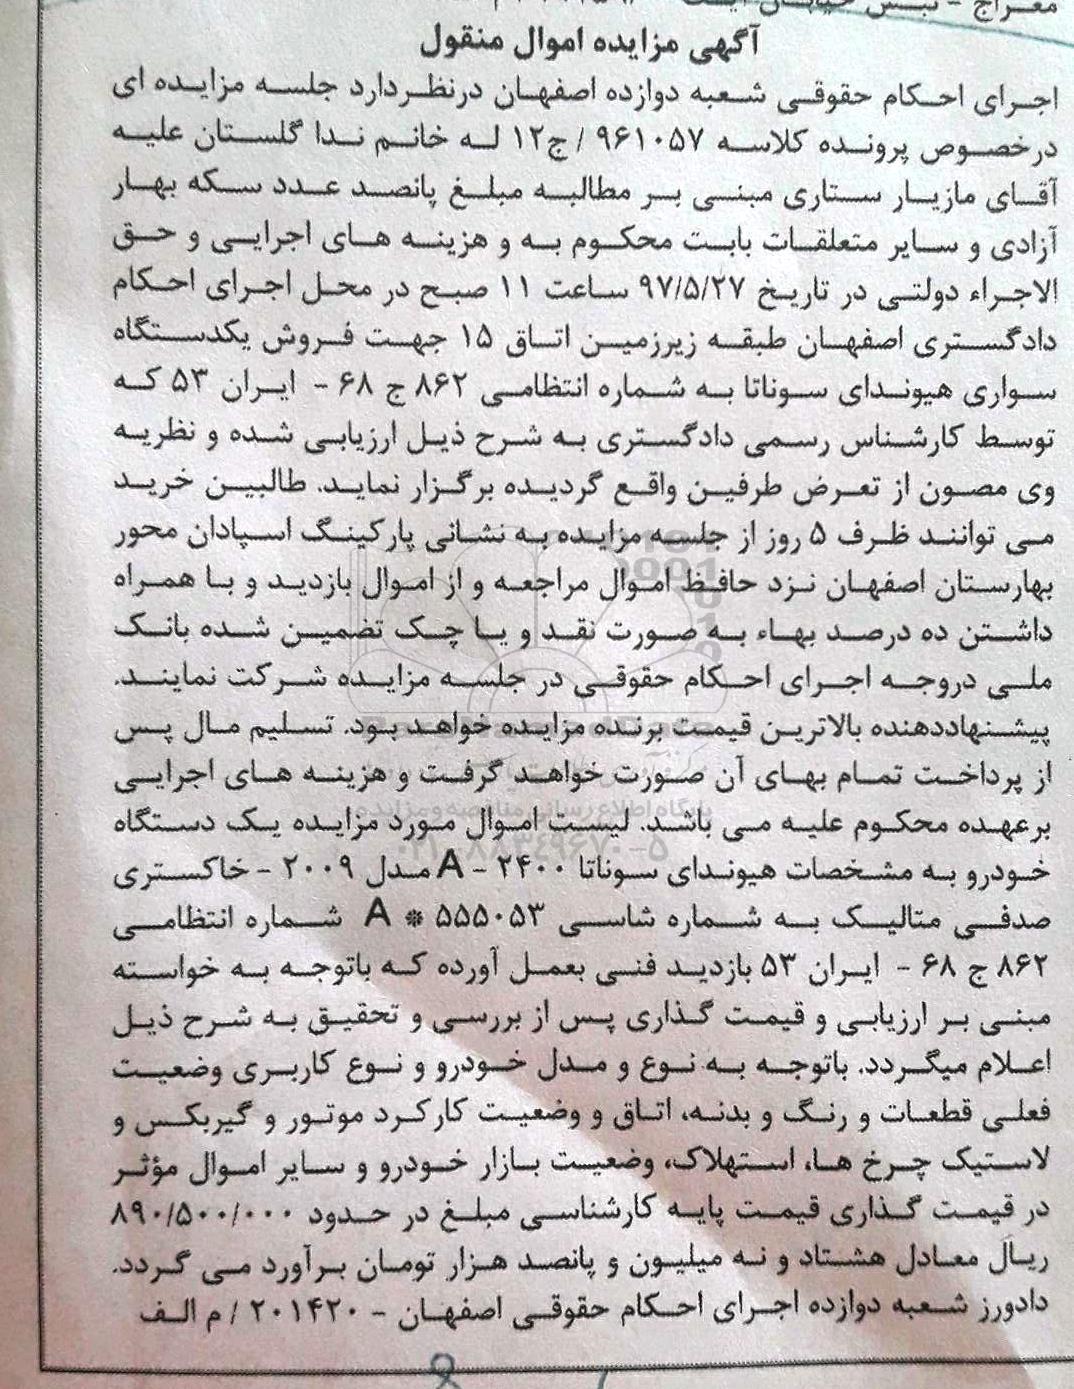 معراج - نبش خیابان
آگهی مزایده اموال منقول
اجرای احکام حقوقی شعبه دوازده اصفهان درنظردارد جلسه مزایده ای
درخصوص پرونده کلاسه ۹۶۱۰۵۷ / ج۱۲ له خانم ندا گلستان علیه
آقای مازیار ستاری مبنی بر مطالبه مبلغ پانصد عدد سکه بهار
آزادی و سایر متعلقات بابت محکوم به و هزینه های اجرایی و حق
الاجراء دولتی در تاریخ ۹۷/۵/۲۷ ساعت ۱۱ صبح در محل اجرای احکام
دادگستری اصفهان طبقه زیرزمین اتاق ۱۵ جهت فروش یکدستگاه
سواری هیوندای سوناتا به شماره انتظامی ۸۶۲ ج ۶۸ - ایران ۵۳ که
توسط کارشناس رسمی دادگستری به شرح ذیل ارزیابی شده و نظریه
وی مصون از تعرض طرفین واقع گردیده برگزار نماید. طالبین خرید
می توانند ظرف ۵ روز از جلسه مزایده به نشانی پارکینگ اسپادان محور
بهارستان اصفهان نزد حافظ اموال مراجعه و از اموال بازدید و با همراه
داشتن ده درصد بهاء به صورت نقد و یا چک تضمین شده بانک
ملی دروجه اجرای احکام حقوقی در جلسه مزایده شرکت نمایند.
پیشنهاددهنده بالاترین قیمت برنده مزایده خواهد بود. تسلیم مال پس
از پرداخت تمام بهای آن صورت خواهد گرفت و هزینه های اجرایی
برعهده محکوم علیه می باشد. لیست اموال مورد مزایده یک دستگاه
خودرو به مشخصات هیوندای سوناتا ۲۴۰۰ - A مدل ۲۰۰۹ - خاکستری
صدفی متالیک به شماره شاسی ۵۵۵۰۵۳ * A شماره انتظامی
۸۶۲ ج ۶۸ - ایران ۵۳ بازدید فنی بعمل آورده که باتوجه به خواسته
مبنی بر ارزیابی و قیمت گذاری پس از بررسی و تحقیق به شرح ذیل
اعلام میگردد. باتوجه به نوع و مدل خودرو و نوع کاربری وضعیت
فعلی قطعات و رنگ و بدنه، اتاق و وضعیت کارکرد موتور و گیربکس و
لاستیک چرخ ها، استهلاک، وضعیت بازار خودرو و سایر اموال مؤثر
در قیمت گذاری قیمت پایه کارشناسی مبلغ در حدود ۸۹۰/۵۰۰/۰۰۰
ریال معادل هشتاد و نه میلیون و پانصد هزار تومان برآورد می گردد.
دادورز شعبه دوازده اجرای احکام حقوقی اصفهان - ۲۰۱۴۲۰ / م الف
پایگاه اطلاع رسانی مناقصه و مزایده
۰۲۱-۸۸۳۴۹۶۷۰-۵